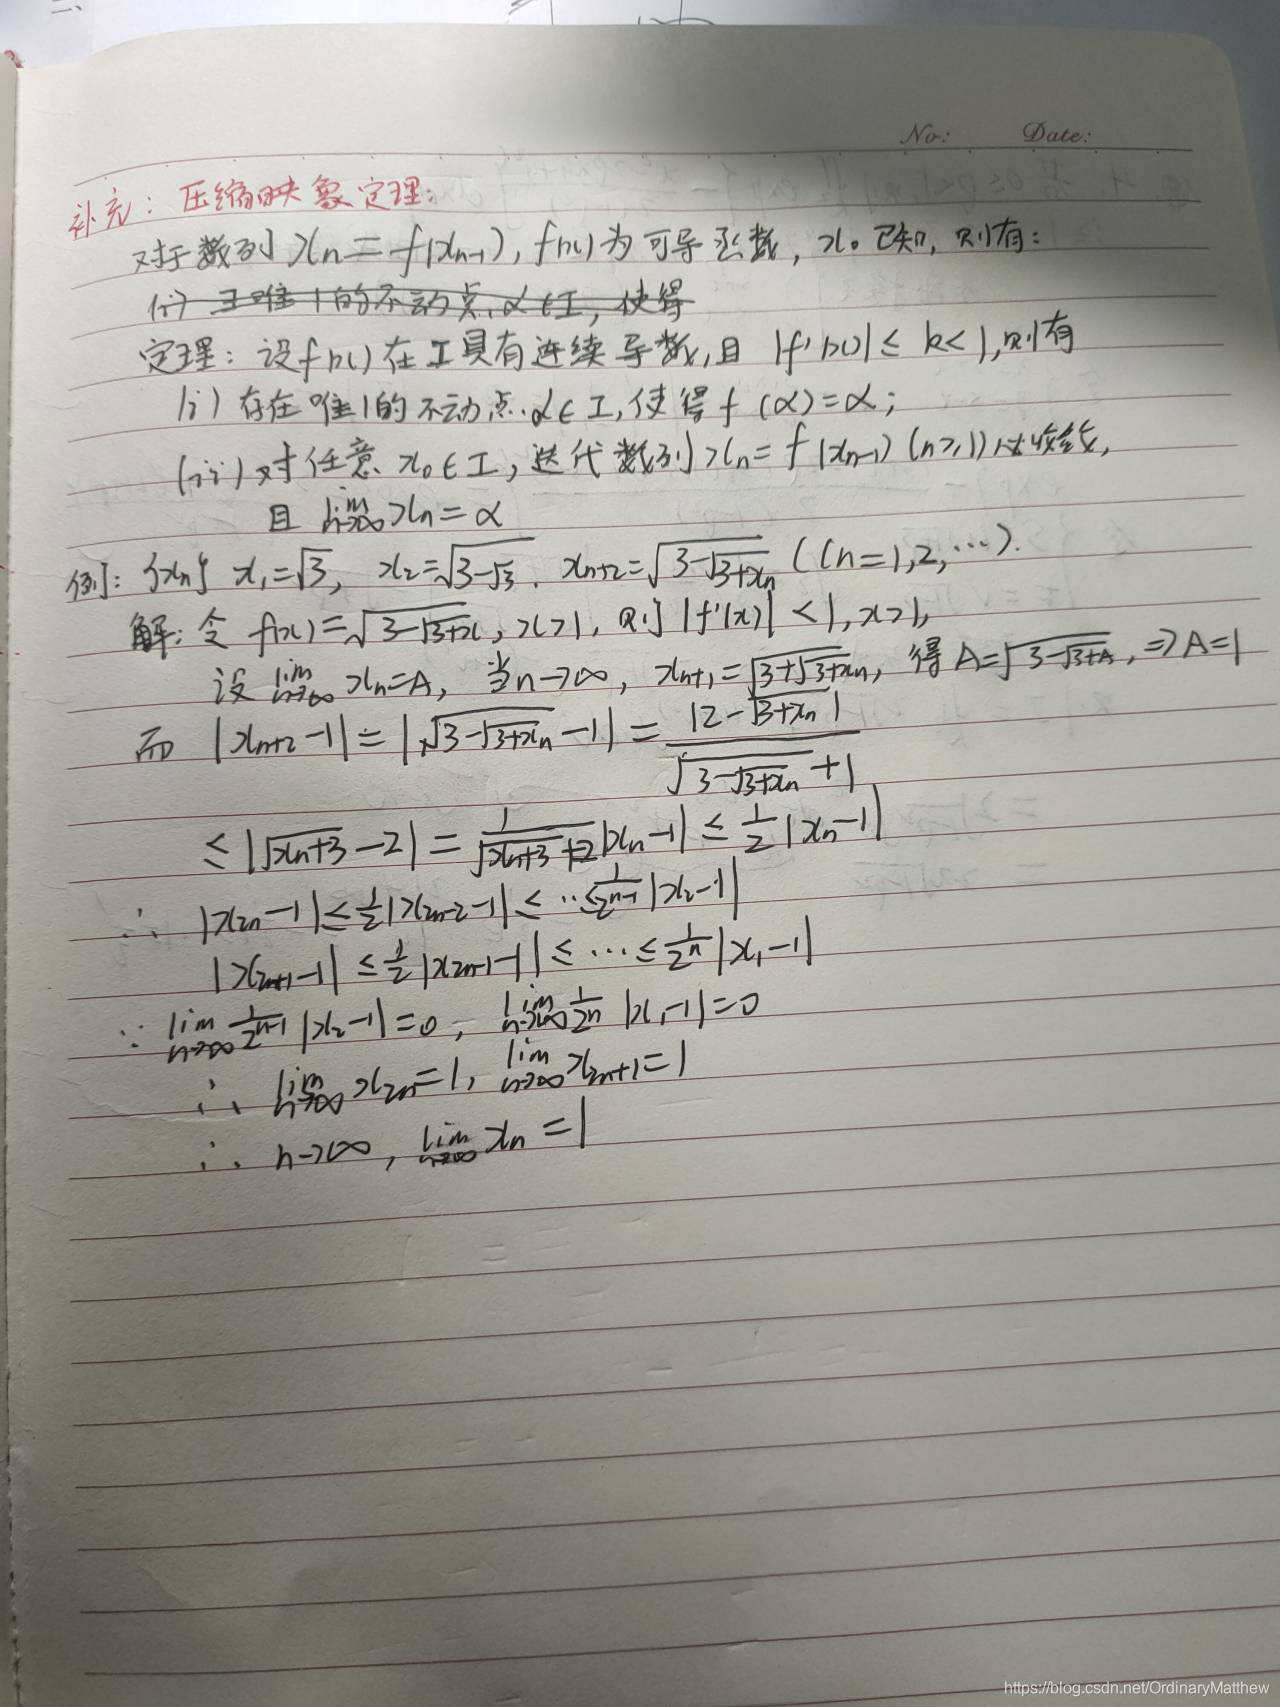 No: Date:
补充：压缩映象定理：
对于数列 xn = f(xn-1), f(x)为可导函数, x0已知, 则有：
(i) 王唯1的不动点 α∈I, 使得
定理：设f(x)在I具有连续导数,且 |f'(x)| ≤ k<1,则有
(i) 存在唯1的不动点 α∈I,使得f(α)=α;
(ii) 对任意 x0∈I, 迭代数列xn=f(xn-1) (n≥1) 收敛,
且 lim n→∞ xn=α
例: {xn} x1=√3, x2=√(3-√3). xn+2=√(3-√(3+xn)) ((n=1,2,…).
解: 令 f(x)=√(3-√(3+x)), x>1, 则 |f'(x)|<1, x>1,
设 lim n→∞ xn=A, 当n→∞, xn+1=√(3+√(3+xn)), 得 A=√(3-√(3+A)), ⇒A=1
而 |xn+2-1| = |√(3-√(3+xn))-1| = |2-√(3+xn)| / (√(3-√(3+xn))+1)
≤ |√(xn+3)-2| = 1/(√(xn+3)+2) |xn-1| ≤ 1/2 |xn-1|
∴ |x2n-1| ≤ 1/2 |x2n-2-1| ≤ … ≤ 1/2^(n-1) |x2-1|
|x2n+1-1| ≤ 1/2 |x2n-1-1| ≤ … ≤ 1/2^n |x1-1|
∵ lim n→∞ 1/2^(n-1) |x2-1|=0, lim n→∞ 1/2^n |x1-1|=0
∴ lim n→∞ x2n=1, lim n→∞ x2n+1=1
∴ n→∞, lim n→∞ xn=1
https://blog.csdn.net/OrdinaryMatthew